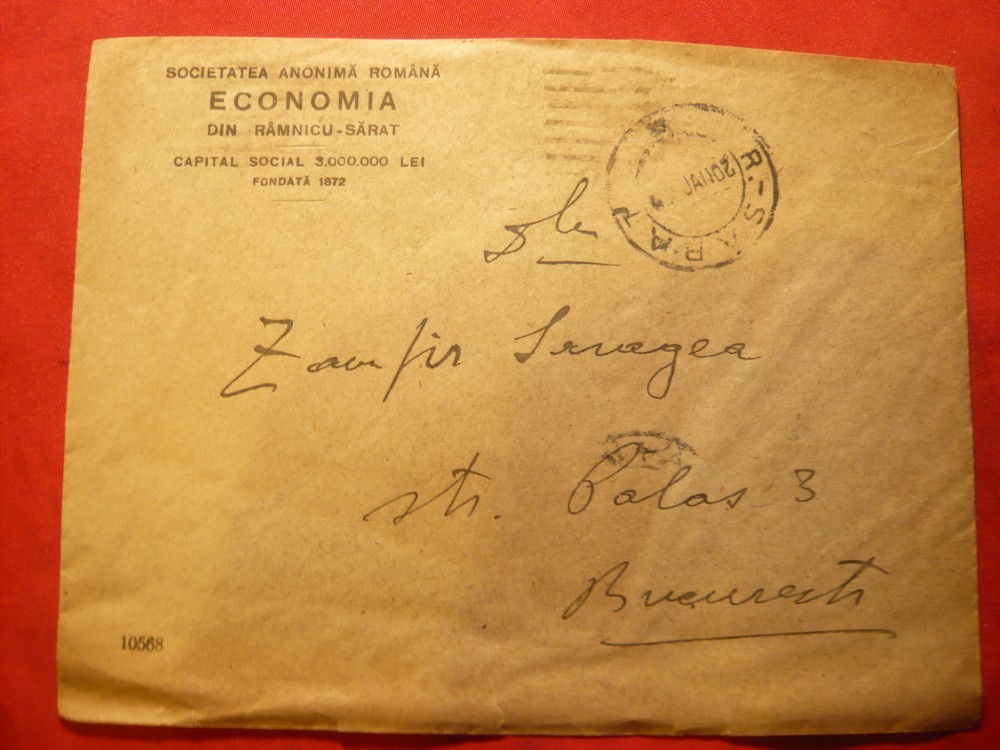 SOCIETATEA ANONIMĂ ROMÂNĂ
ECONOMIA
DIN RÂMNICU-SĂRAT
CAPITAL SOCIAL 3.000.000 LEI
FONDATĂ 1872
R.-SĂRAT
20 IAN
Dlui
Zamfir
str. Palas 3
Bucuresti
10568